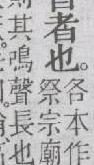 者也。各本作
祭宗廟
其鳴聲長也